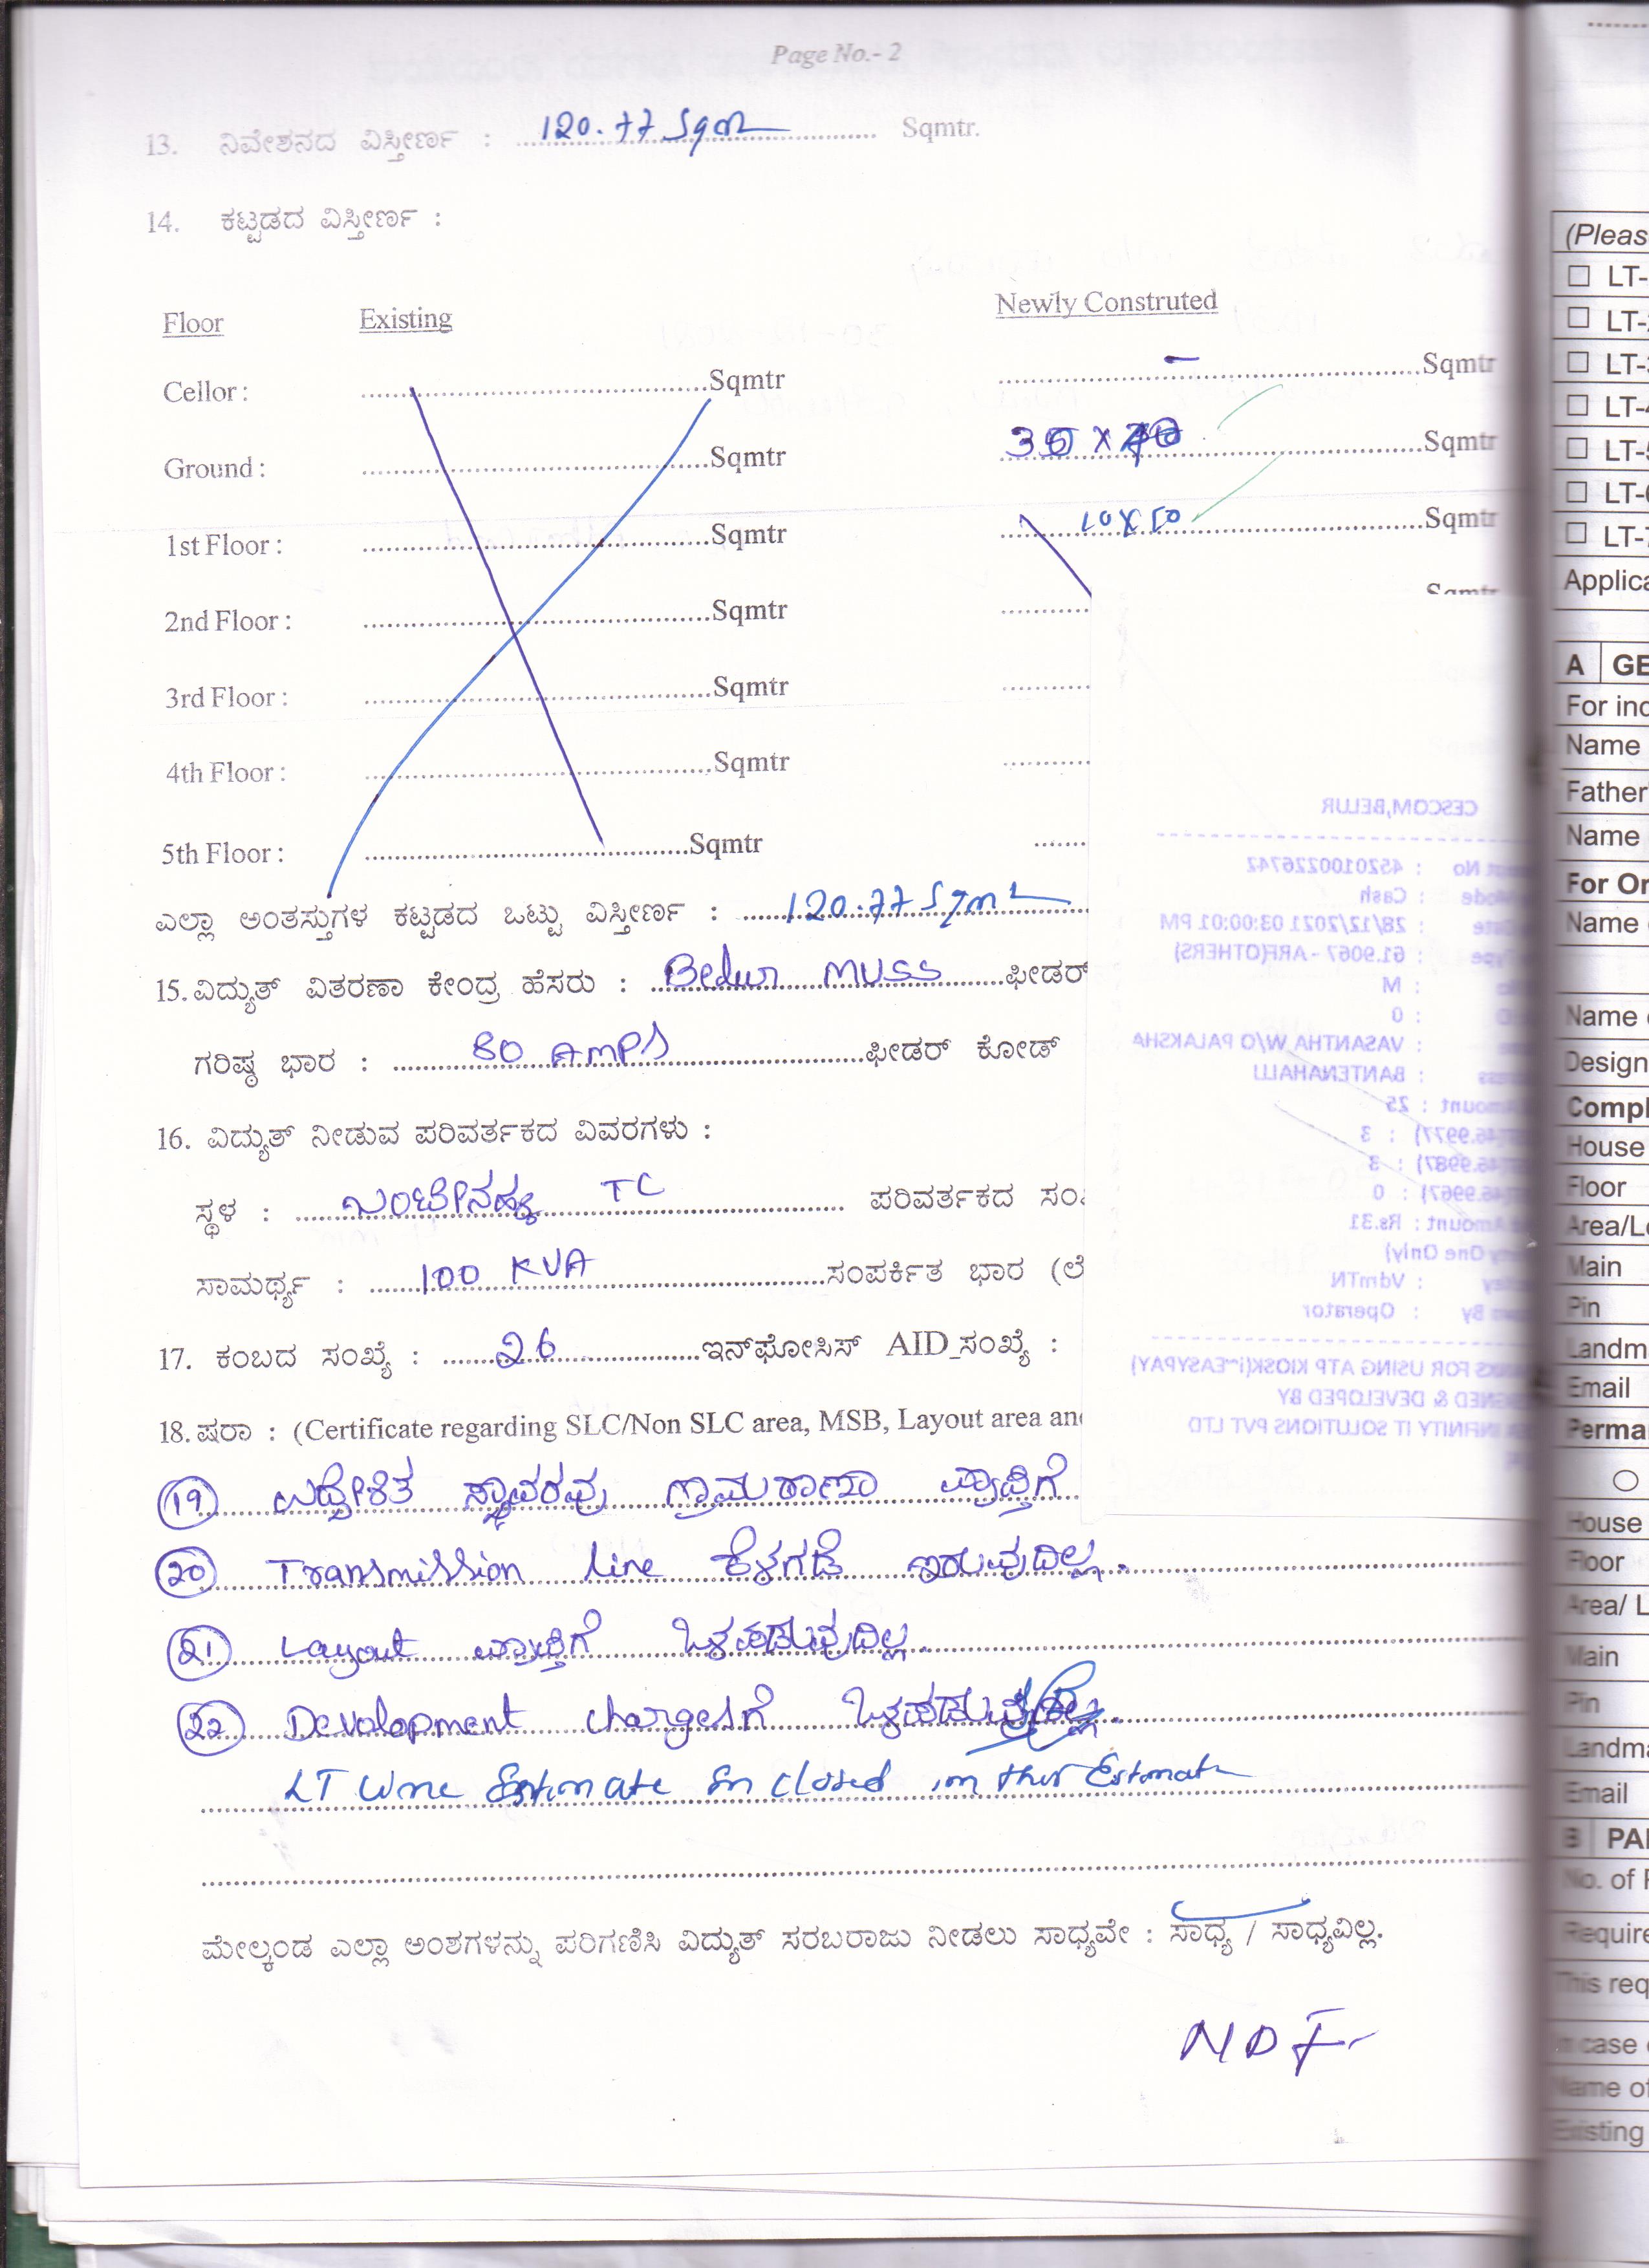 Page No.- 2
13. ನಿವೇಶನದ ವಿಸ್ತೀರ್ಣ : 120.77 Sqm Sqmtr.
14. ಕಟ್ಟಡದ ವಿಸ್ತೀರ್ಣ :
Floor Existing Newly Construted
Cellor : Sqmtr - Sqmtr
Ground : Sqmtr Sqmtr
1st Floor : Sqmtr 10X50 Sqmtr
2nd Floor : Sqmtr Sqmtr
3rd Floor : Sqmtr
4th Floor : Sqmtr
5th Floor : Sqmtr
ಎಲ್ಲಾ ಅಂತಸ್ತುಗಳ ಕಟ್ಟಡದ ಒಟ್ಟು ವಿಸ್ತೀರ್ಣ : 120.77 Sqmt
15. ವಿದ್ಯುತ್ ವಿತರಣಾ ಕೇಂದ್ರ ಹೆಸರು : Belur MUSS ಫೀಡರ್
ಗರಿಷ್ಠ ಭಾರ : 80 AMPS ಫೀಡರ್ ಕೋಡ್
16. ವಿದ್ಯುತ್ ನೀಡುವ ಪರಿವರ್ತಕದ ವಿವರಗಳು :
ಸ್ಥಳ : ಬಂಟೇನಹಳ್ಳಿ TC ಪರಿವರ್ತಕದ
ಸಾಮರ್ಥ್ಯ : 100 KVA ಸಂಪರ್ಕಿತ ಭಾರ
17. ಕಂಬದ ಸಂಖ್ಯೆ : 26 ಇನ್‌ಫೋಸಿಸ್ AID_ಸಂಖ್ಯೆ :
18. ಷರಾ : (Certificate regarding SLC/Non SLC area, MSB, Layout area and
19 ಉದ್ದೇಶಿತ ಸ್ಥಾವರವು ಗ್ರಾಮಠಾಣಾ ವ್ಯಾಪ್ತಿಗೆ
20 Transmission line ಕೆಳಗಡೆ ಇರುವುದಿಲ್ಲ.
21 Layout ವ್ಯಾಪ್ತಿಗೆ ಒಳಪಡುವುದಿಲ್ಲ.
22 Development chargesಗೆ ಒಳಪಡುವುದಿಲ್ಲ.
LT Estimate Enclosed in this Estimate
ಮೇಲ್ಕಂಡ ಎಲ್ಲಾ ಅಂಶಗಳನ್ನು ಪರಿಗಣಿಸಿ ವಿದ್ಯುತ್ ಸರಬರಾಜು ನೀಡಲು ಸಾಧ್ಯವೇ : ಸಾಧ್ಯ / ಸಾಧ್ಯವಿಲ್ಲ.
NDF
CESCOM,BELUR
No : 4520100226742
Mode : Cash
Date : 28/12/2021 03:00:01 PM
Type : 61.9067 - ARF(OTHERS)
: M
: 0
: VASANTHA W/O PALAKSHA
: BANTENAHALLI
Amount : 25
46.9977) : 3
46.9987) : 3
46.9967) : 0
Amount : Rs.31
One Only)
: VdmTN
By : Operator
FOR USING ATP KIOSK(i~EASYPAY)
& DEVELOPED BY
INFINITY IT SOLUTIONS PVT LTD
(Pleas
LT-
LT-
LT-
LT-4
LT-
LT-6
LT-7
Applica
A GE
For ind
Name
Father'
Name
For Or
Name
Name
Design
Compl
House
Floor
Area/Lo
Main
Pin
Landm
Email
Perma
House
Floor
Area/ L
Main
Pin
Landma
Email
B PA
No. of
Require
This req
In case
Name of
Existing